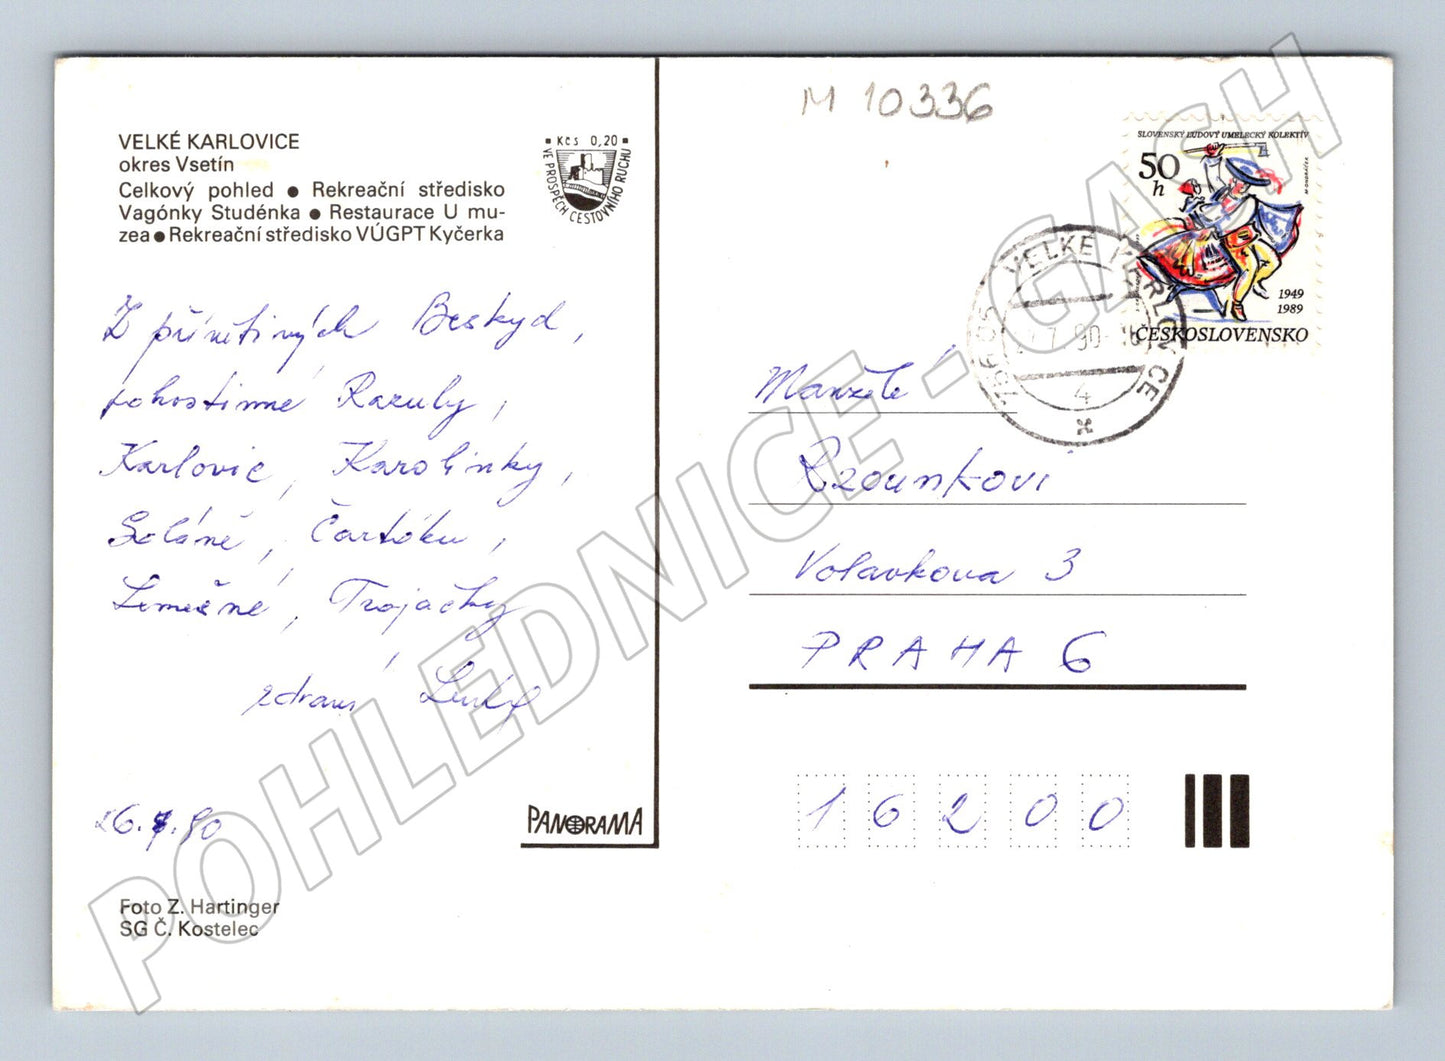 M 10336
VELKÉ KARLOVICE
okres Vsetín
Celkový pohled ● Rekreační středisko
Vagónky Studénka ● Restaurace U mu-
zea ● Rekreační středisko VÚGPT Kyčerka
Kčs 0,20
VE PROSPĚCH CESTOVNÍHO RUCHU
SLOVENSKÝ ĽUDOVÝ UMELECKÝ KOLEKTÍV
50
h
M. ONDRÁČEK
1949
1989
ČESKOSLOVENSKO
756 06 VELKÉ KARLOVICE
7. 90
4
Z přívětivých Beskyd,
pohostinné Razuly,
Karlovic, Karolinky,
Soláně, Čartáku,
Lemešné, Trojačky
zdraví
26.7.90
Manželé
Szounkovi
Volavkova 3
PRAHA 6
16200
PANORAMA
Foto Z. Hartinger
SG Č. Kostelec
POHLEDNICE - GASH